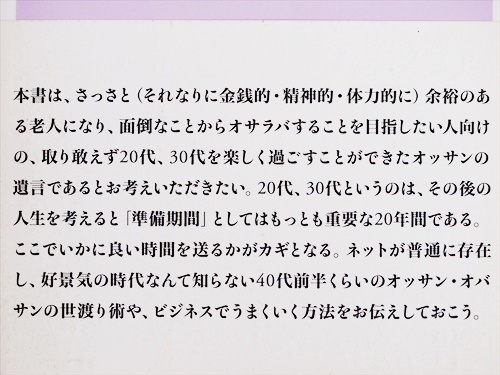 本書は、さっさと（それなりに金銭的・精神的・体力的に）余裕のあ
る老人になり、面倒なことからオサラバすることを目指したい人向け
の、取り敢えず20代、30代を楽しく過ごすことができたオッサンの
遺言であるとお考えいただきたい。20代、30代というのは、その後の
人生を考えると「準備期間」としてはもっとも重要な20年間である。
ここでいかに良い時間を送るかがカギとなる。ネットが普通に存在
し、好景気の時代なんて知らない40代前半くらいのオッサン・オバ
サンの世渡り術や、ビジネスでうまくいく方法をお伝えしておこう。